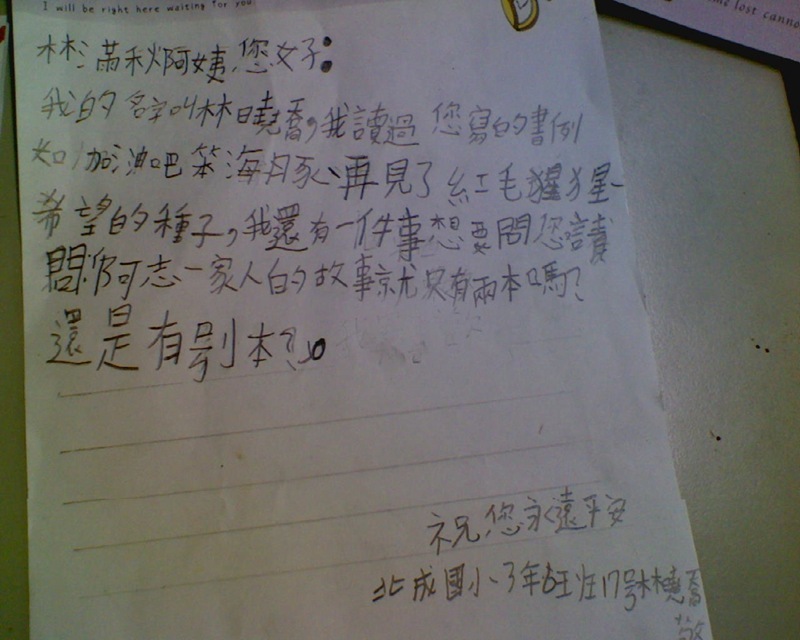 I will be right here waiting for you
me lost canno
林滿秋阿姨,您好:
我的名字叫林曉喬,我讀過 您寫的書例
如 加油吧笨海豚、再見了 紅毛猩猩、
希望的種子,我還有一件事想要問您請
問阿志一家人的故事就只有兩本嗎?
還是有別本?。
祝您永遠平安
北成國小、3年6班17號林曉喬
敬